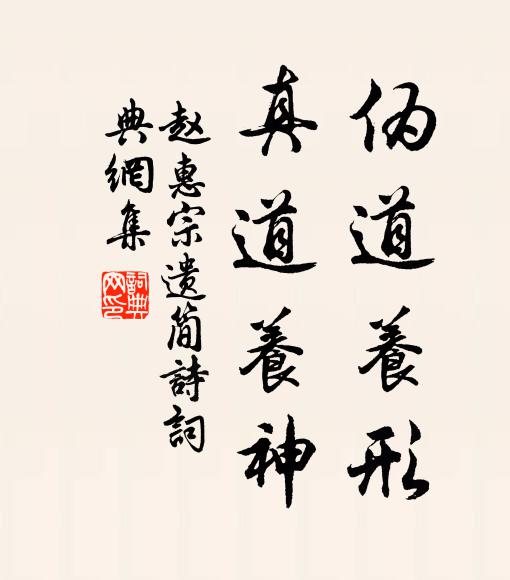 伪道養形
真道養神
赵惠宗遗简詩詞
典網集
詞典
网印